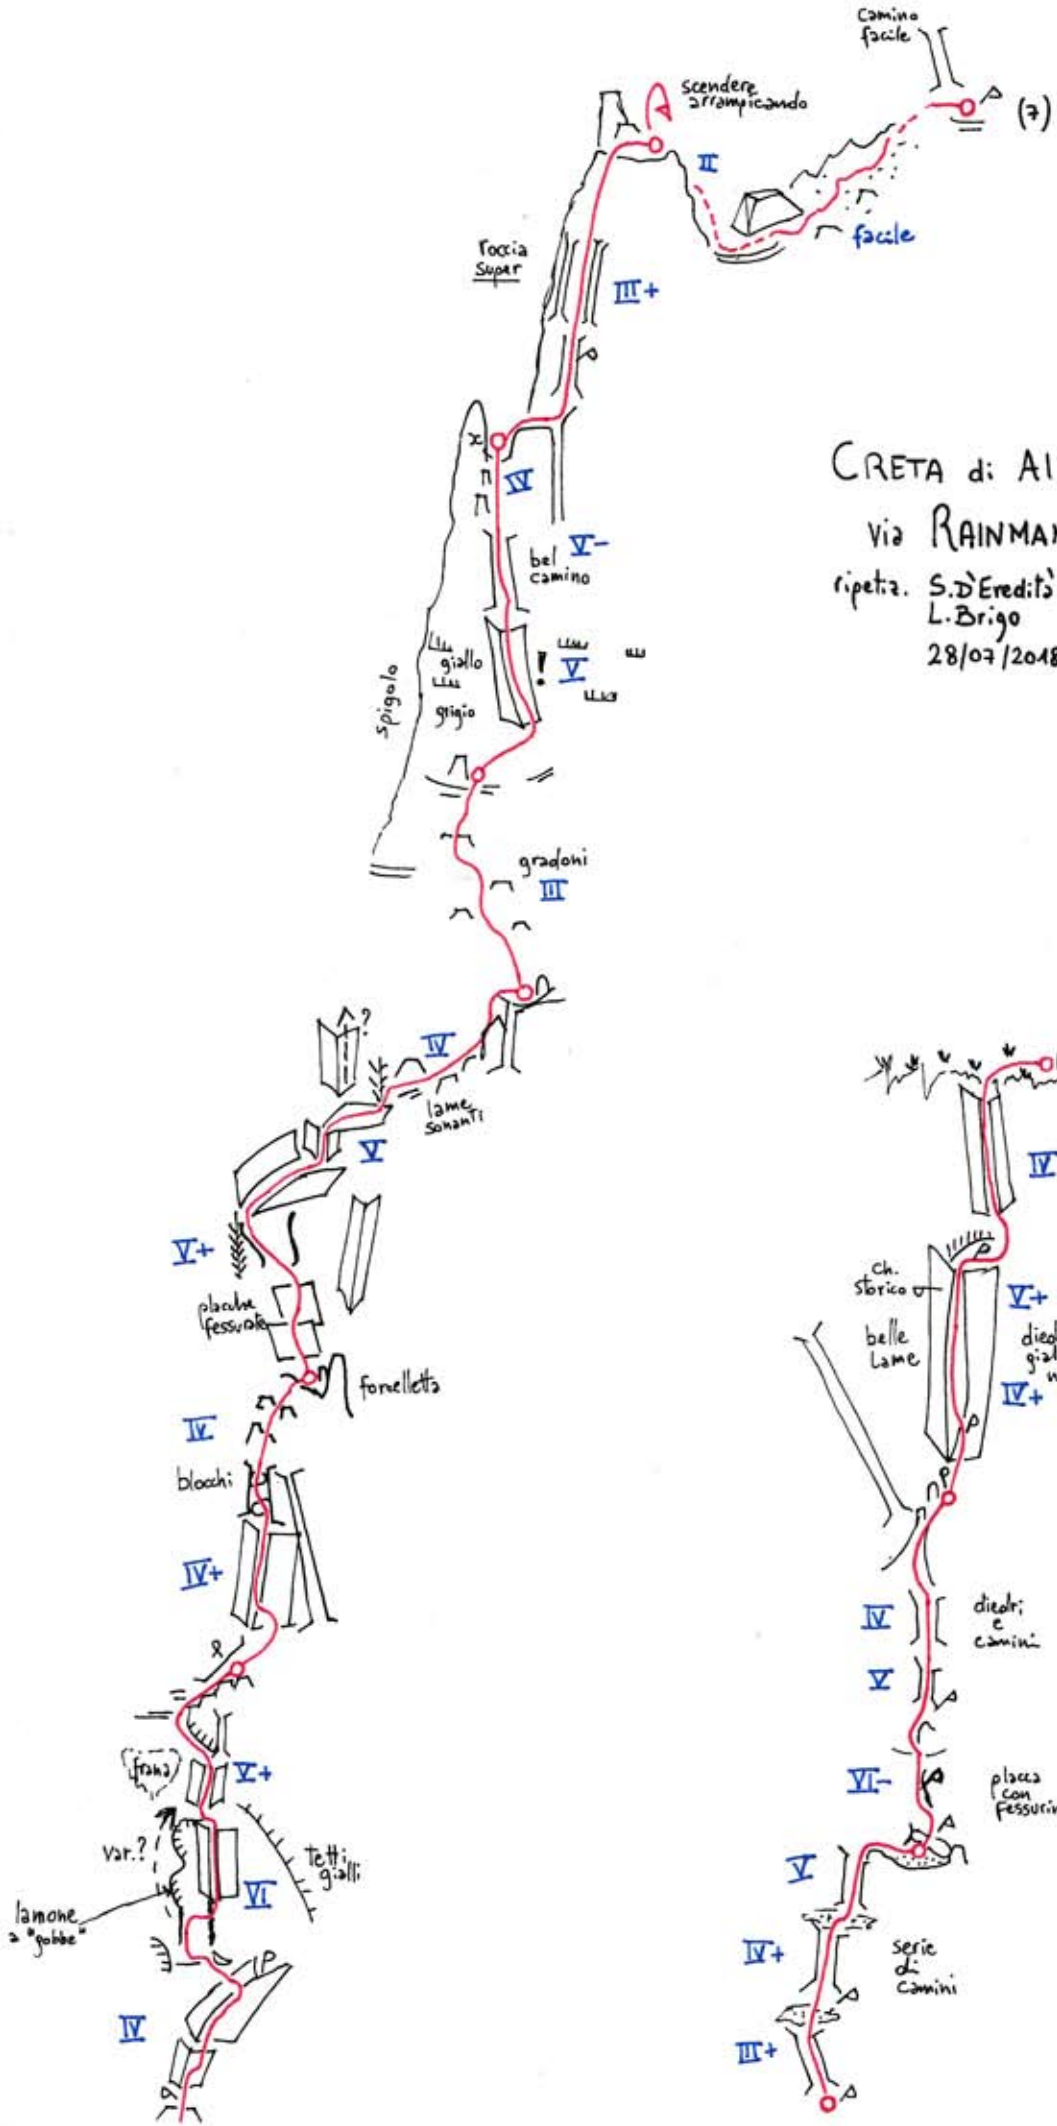 camino
facile
scendere
arrampicando
(7)
II
facile
roccia
super
III+
CRETA di
via RAINMAN
ripetiz. S. D'Eredità
L. Brigo
28/07/2018
IV
V-
bel
camino
giallo
grigio
!
V
spigolo
gradoni
III
?
IV
lame
sonanti
V
V+
placche
fessurate
forcelletta
IV
blocchi
IV+
frana
V+
var.?
tetti
gialli
VI
lamone
a "gobbe"
IV
IV
ch.
storico
V+
belle
lame
IV+
IV
diedri
e
camini
V
VI-
placca
con
V
IV+
serie
di
camini
III+